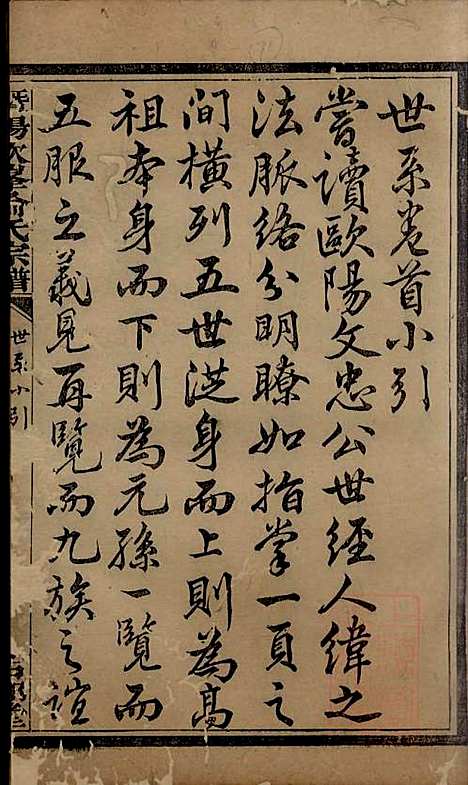 世系卷首小引
嘗讀歐陽文忠公世經人緯之
法脈絡分明瞭如指掌一頁之
间橫列五世從身而上則為高
祖本身而下則為元孫一覽而
五服之義見再覽而九族之誼
暨陽 氏宗譜
世系小引